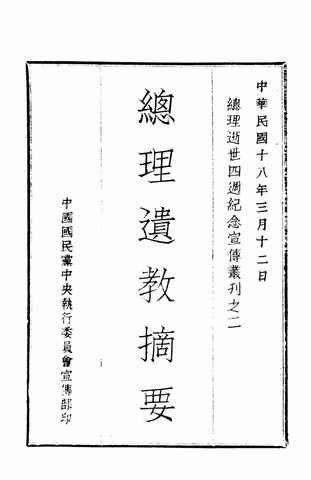 中華民國十八年三月十二日
總理逝世四週紀念宣傳叢刊之二
總理遺教摘要
中國國民黨中央執行委員會宣傳部印